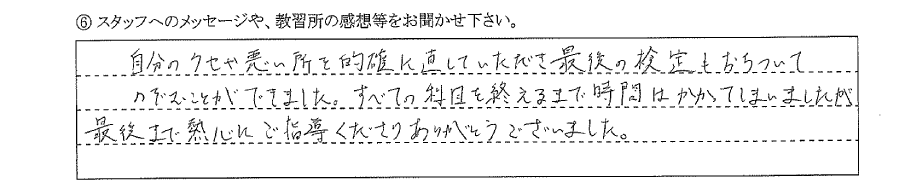 ⑥ スタッフへのメッセージや、教習所の感想等をお聞かせ下さい。
自分のクセや悪い所を的確に直していただき最後の検定もおちついて
のぞむことができました。すべての科目を終えるまで時間はかかってしまいましたが
最後まで熱心にご指導くださりありがとうございました。